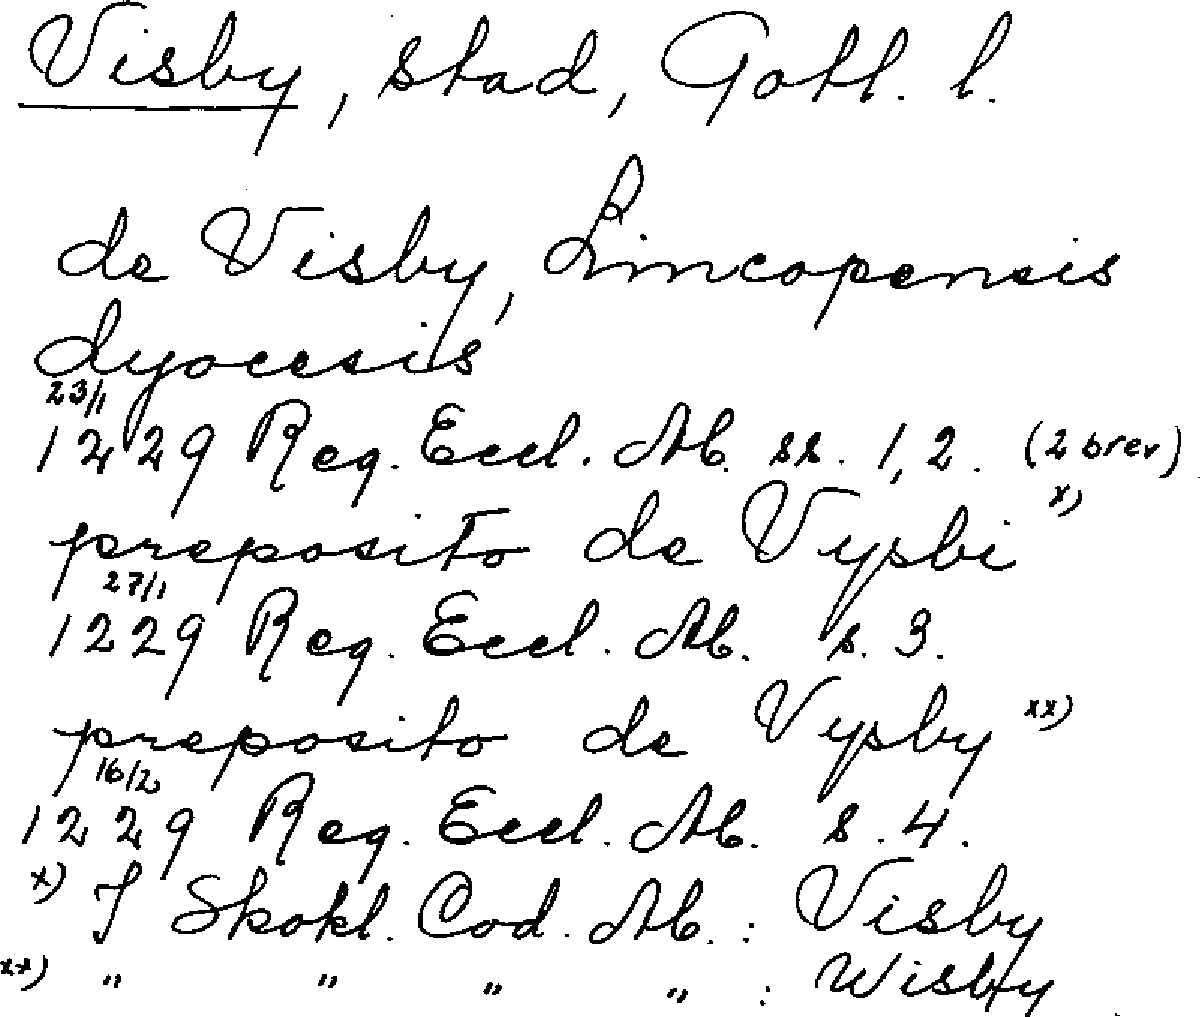 Visby, stad, Gotl. l.
de Visby, Lincopensis
dyocesis
23/1
1229 Reg. Eccl. Ab. ss. 1, 2. (2 brev)
preposito de Vysbi x)
27/1
1229 Reg. Eccl. Ab. s. 3.
preposito de Vysby xx)
16/2
1229 Reg. Eccl. Ab. s. 4.
x) I Skokl. Cod. Ab. : Visby
xx) " " " " : Wisby